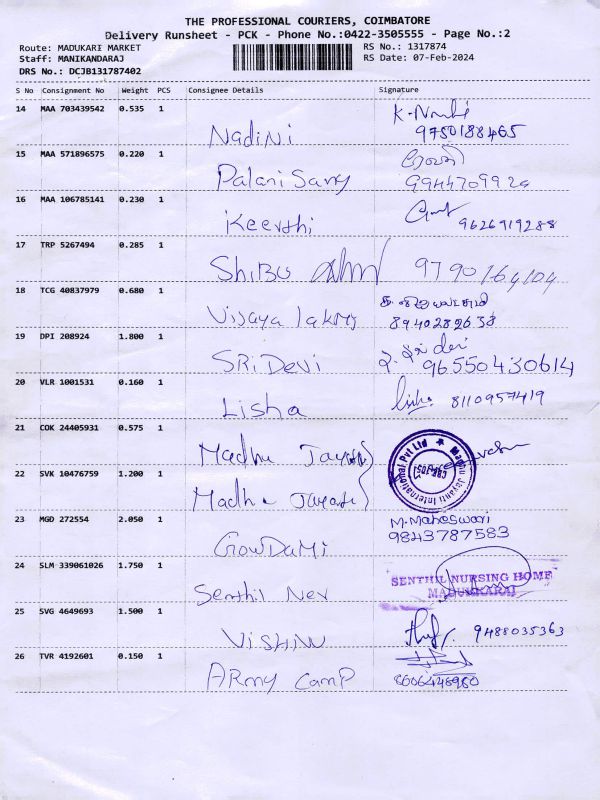 THE PROFESSIONAL COURIERS, COIMBATORE
Delivery Runsheet - PCK - Phone No.:0422-3505555 - Page No.:2
Route: MADUKARI MARKET RS No.: 1317874
Staff: MANIKANDARAJ RS Date: 07-Feb-2024
DRS No.: DCJB131787402
S No Consignment No Weight PCS Consignee Details Signature
14 MAA 703439542 0.535 1 Nadini 9750188465
15 MAA 571896575 0.220 1 Palani Samy
16 MAA 106785141 0.230 1 Keerthi 9626919288
17 TRP 5267494 0.285 1 SHIBU 9790164104
18 TCG 40837979 0.680 1 Vijaya lakmy 8940282638
19 DPI 208924 1.800 1 SRIDEVI 96550430614
20 VLR 1001531 0.160 1 Lisha Lisha 8110957419
21 COK 24405931 0.575 1 Madhu Jayanti Madhu Jayanti International Pvt Ltd
22 SVK 10476759 1.200 1 Madhu Jayanti
23 MGD 272554 2.050 1 GOWDAMI M. Maheswari
9843787583
24 SLM 339061026 1.750 1 Senthil Ner SENTHIL NURSING HOME
MADUKKARAI
25 SVG 4649693 1.500 1 VISHNU 9488035363
26 TVR 4192601 0.150 1 ARmy CamP 8006448980